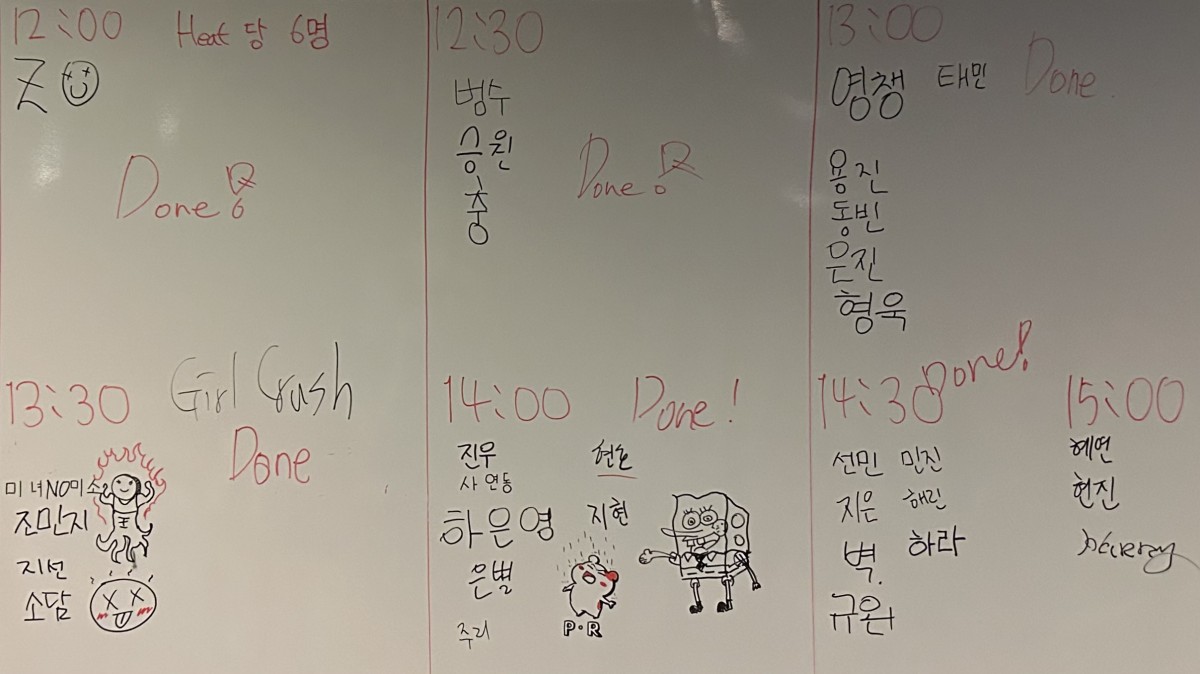 12:00 Heat 당 6명
Z
Done!
12:30
범수
승원
충
Done!
13:00
영챙 태민 Done.
용진
동빈
은진
형욱
13:30 Girl Crush
Done
미녀NO미소
조민지
지선
소담
14:00 Done!
진우
사연동
하은영 지현
은별
주리
P.R
14:30 Done!
선민 민진
지은 해린
벽. 하라
규원
15:00
혜연
현진